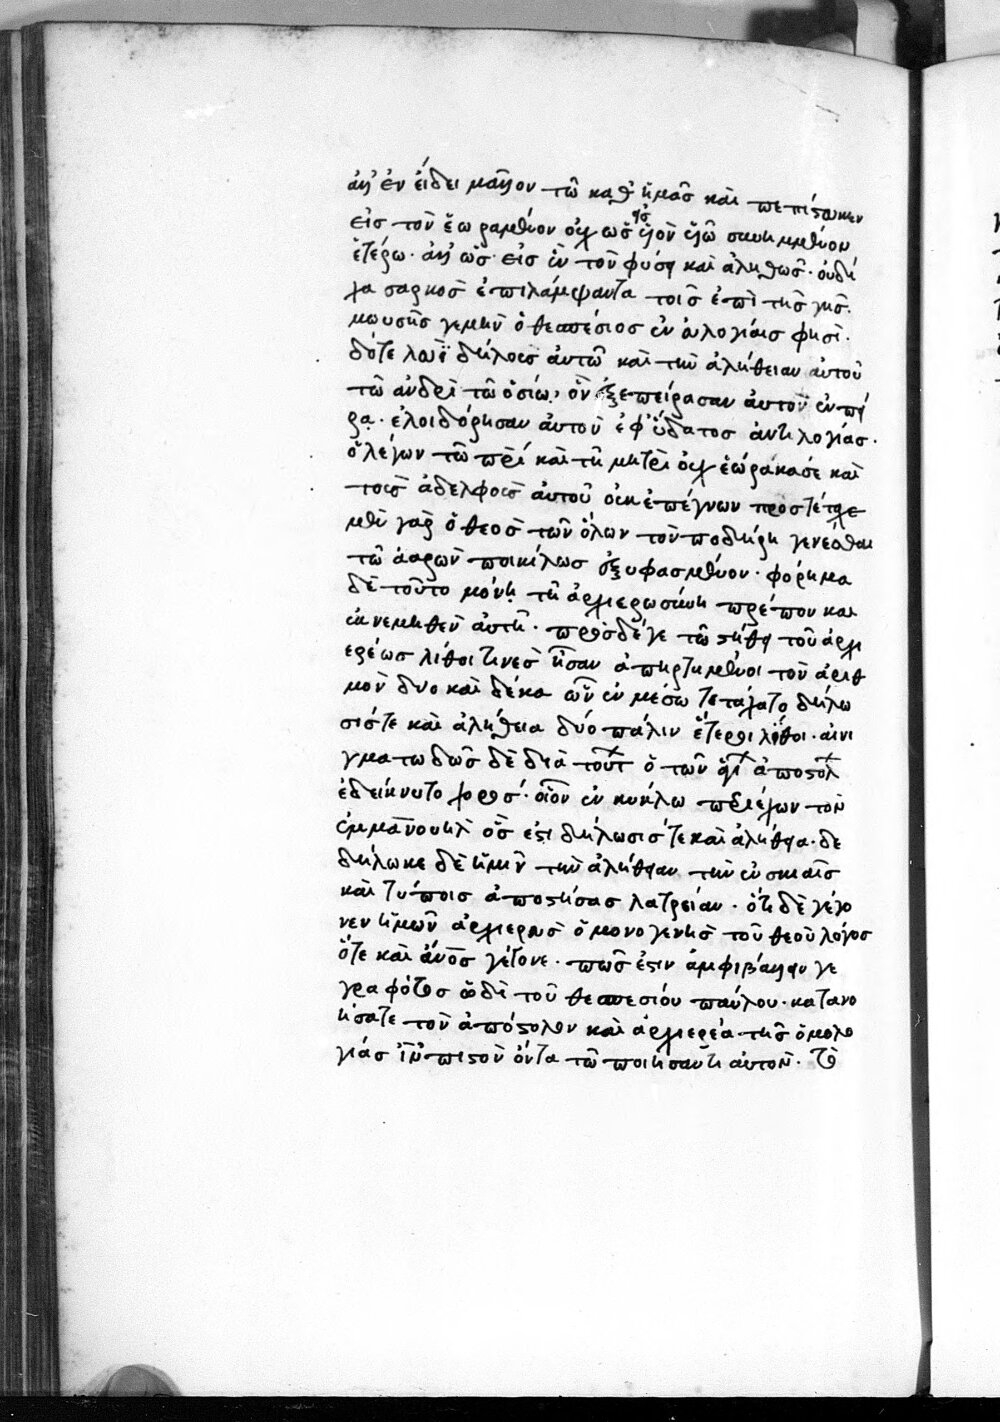 ἀλλ' ἐν εἴδει μᾶλλον τῶ καθ' ἡμᾶσ καὶ πεπίστευκεν
εἰσ τὸν ἑωραμένον οὐχ ὡσ υἱὸν ἐν υἱῶ σκηνημένον
ἑτέρω· ἀλλ' ὡσ εἰσ ἕν τὸν φύσει καὶ ἀληθῶσ· οὐ δί
χα σαρκὸσ ἐπιλάμψαντα τοῖσ ἐπὶ τῆσ γῆσ·
μωυσῆσ γεμὴν ὁ θεσπέσιοσ ἐν εὐλογίαισ φησὶ·
δότε λευῒ δήλουσ αὐτῶ καὶ τὴν ἀλήθειαν αὐτοῦ
τῶ ἀνδρὶ τῶ ὁσίω, ὃν ἐξεπείρασαν αὐτὸν ἐν πεί
ρα· ἐλοιδόρησαν αὐτὸν ἐφ' ὕδατοσ ἀντιλογίασ·
ὁ λέγων τῶ πρὶ καὶ τῆ μητρὶ οὐχ ἑώρακάσε καὶ
τοὺσ ἀδελφοὺσ αὐτοῦ οὐκ ἐπέγνων προστέταχε
μὲν γὰρ ὁ θεὸσ τῶν ὅλων τὸν ποδήρη γενέσθαι
τῶ ἀαρὼν ποικίλωσ ἐξυφασμένον· φόρημα
δὲ τοῦτο μόνη τῆ ἀρχιερωσύνη πρέπον καὶ
ἐκνεμηθὲν αὐτῆ· πρὸσ δέ γε τῶ στήθει τοῦ ἀρχι
ερέωσ λίθοι τινὲσ ἦσαν ἀπηρτημένοι τὸν ἀριθ
μὸν δυο καὶ δέκα ὧν ἐν μέσω τετάχατο δήλω
σίστε καὶ ἀλήθεια δύο πάλιν ἕτεροι λίθοι· αἰνι
γματωδῶσ δὲ διὰ τούτ ὁ τῶν ἁγί ἀποστόλ
ἐδείκνυτο χορόσ· οἷον ἐν κύκλω περιέχων τὸν
ἐμμανουὴλ ὅσ ἐστι δήλωσίσ τε καὶ ἀλήθεια· δε
δήλωκε δὲ ἡμῖν τὴν ἀλήθειαν τὴν ἐν σκιαῖσ
καὶ τύποισ ἀποστήσασ λατρείαν· ὅτι δὲ γέγο
νεν ἡμῶν ἀρχιερεὺσ ὁ μονογενὴσ τοῦ θεοῦ λόγοσ
ὅτε καὶ ἄνοσ γέγονε· πῶσ ἔστιν ἀμφιβάλλειν γε
γραφότοσ ὡδὶ τοῦ θεσπεσίου παύλου· κατανο
ήσατε τὸν ἀπόστολον καὶ ἀρχιερέα τῆσ ὁμολο
γίασ ἰῦ πιστὸν ὄντα τῶ ποιήσαντι αὐτόν· τὸ